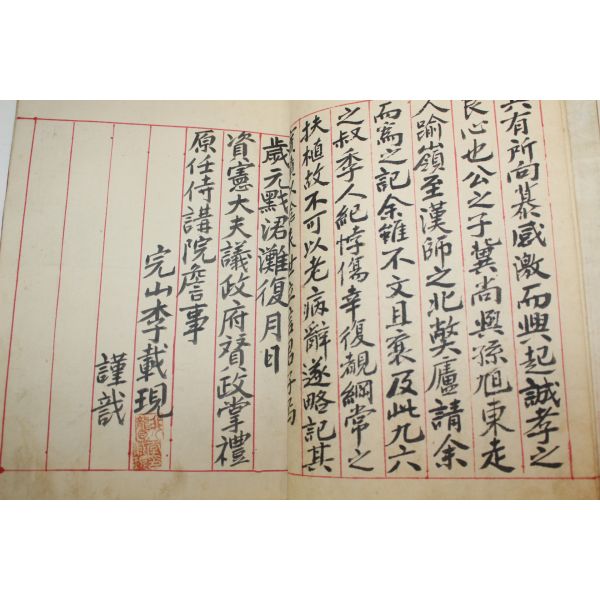 具有所向慕感激而興起誠孝之
良心也公之子冀尚與孫旭東走
人踰嶺至漢師之北弊廬請余
而寫之記余雖不文且衰及此九六
之叔季人紀悖傷幸復覩綱常之
扶植故不可以老病辭遂略記其
歲元黓涒灘復月日
資憲大夫議政府贊政掌禮
原任侍講院詹事
完山李載現
謹誌